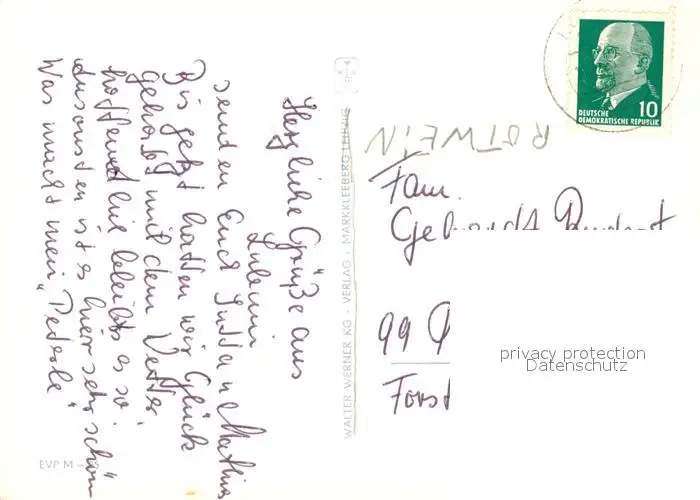 Herzliche Grüße aus
Lubmin
senden Euch Jutta u. Mathias
Bis jetzt hatten wir Glück
gehabt mit dem Wetter
hoffentlich bleibts so,
ansonsten ist es hier sehr schön
Was macht mein "Pederle"
EVP M
WALTER WERNER KG · VERLAG · MARKKLEEBERG LEIPZIG
DEUTSCHE
DEMOKRATISCHE REPUBLIK
10
ROTWEIN
Fam.
99
Forst
privacy protection
Datenschutz